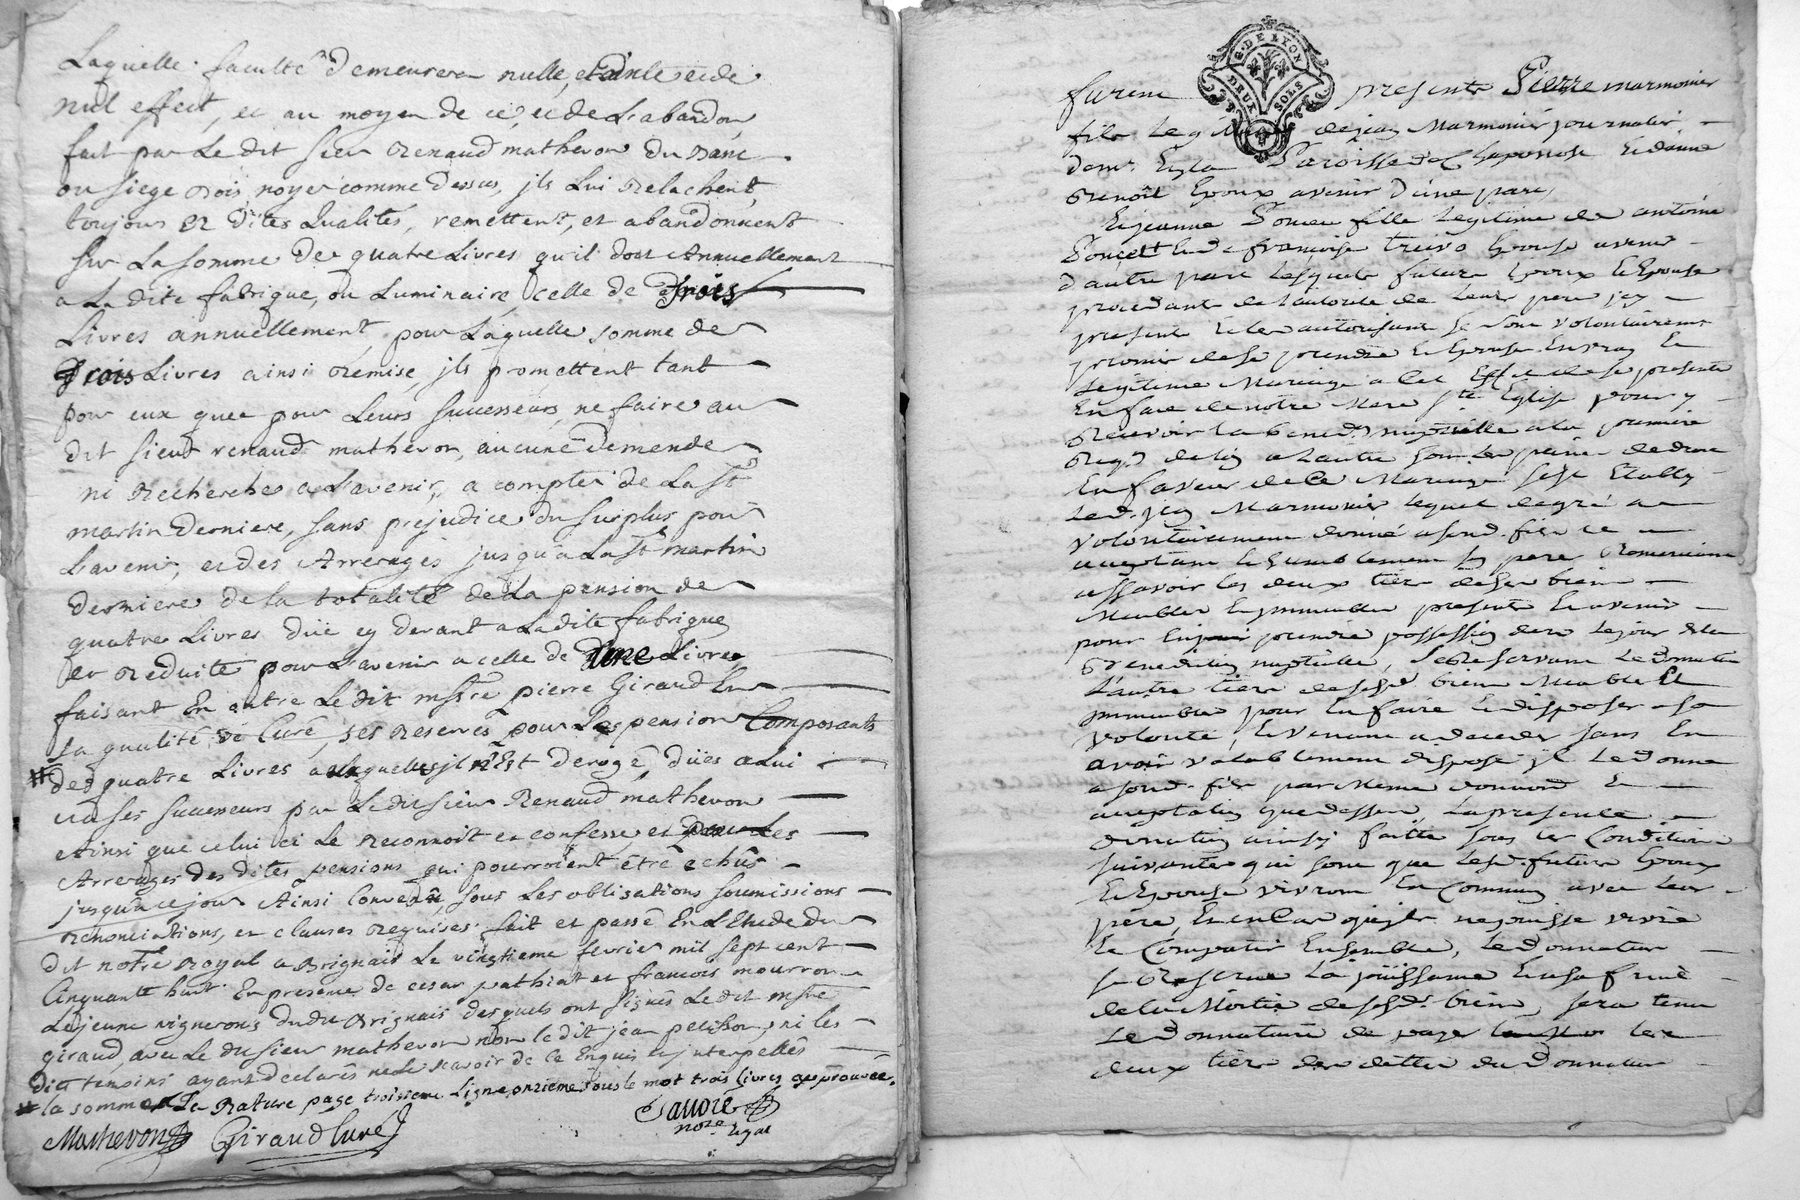 Laquelle faculté demeurera nulle, eteinte et de
nul effect, et au moyen de ce, et de L'abandon
fait par Le dit sieur Renaud mathevon du Banc
ou siege Bois noyer comme Dessus, jls Lui Relachent,
toujours Es Dites Qualités, remettent, et abandonnent
sur La somme De quatre Livres qu'il doit Annuellement
a La dite fabrique, ou Luminaire, celle de Trois
Livres annuellement, pour Laquelle somme de
Trois Livres ainsi Remise, jls promettent tant
pour eux que pour Leurs successeurs, ne faire au
dit sieur renaud mathevon, aucune Demende
ni Recherches a L'avenir, a compter de La St
martin Derniere, sans prejudice du surplus pour
L'avenir, et des Arrerages jusqu'a La St martin
derniere de la totalité de La pension de
quatre Livres düe cy devant a La dite fabrique
et Reduite pour L'avenir a celle de Une Livre
faisant En outre Le dit mssre pierre Giraud En
sa qualité de Curé, ses Reserves pour Les pension Composants
# des quatre Livres auxquelles jl n'Est derogé düies a Lui
et a ses successeurs par Le dit sieur Renaud mathevon
Ainsi que celui ci Le Reconnoit et confesse et pour Les
Arrerages des dites pensions qui pourroient être echûs
jusqu'a ce jour Ainsi Convenû, sous Les obligations soumissions
Renonciations, et clauses Requises. fait et passé En L'Etude du
dit notre Royal a Brignais Le vingtieme fevrier mil sept cent
Cinquante huit. En presence de cesar pathiat et francois mourron
Le jeune vignerons du dit Brignais desquels ont signés Le dit mssre
giraud, avec Le dit sieur mathevon non le dit jean petitbon, ni les
dits temoins ayant declarés ne Le scavoir de ce Enquis et jnterpellés
# la somme La Rature page troisieme Ligne onzieme sous le mot trois livres approuvée.
Mathevon Giraud Curé
Dauoré
nore Royal
G. DE LYON
DEUX SOLS
furent presents Pierre marmonier
fils Leg de jean Marmonier journalier
demt En la Paroisse de Chaponost Et donne
Benoit Epoux avenir d'une part,
Et jeanne Poncet fille Legitime de antoine
Poncet Et de francoise Epouse avenir
d'autre part Lesquels futurs Epoux Et Epouse
procedant de l'autorité de Leurs pere jcy
presents Et les autorisant se sont volontairement
promis de se prendre Et Epouser En vray Et
Legitime Mariage a Cet Effet de se presenter
En face de notre Mere Ste Eglise pour y
Recevoir La bened. nuptialle a la premiere
Reqon de l'un a L'autre sous les peines de droit
En faveur de Ce Mariage s'est Etably
Led. jean Marmonier lequel de gré a
volontairement donné a sond. fils ce
acceptant Et humblement son pere Remerciant
assavoir les deux tiers de ses biens
Meubles Et jmmeubles presents Et avenir
pour En prendre possession des le jour de la
Benediction nuptialle, se Reservant Le donateur
L'autre tiers de sesd. biens Meubles Et
jmmeubles pour En faire Et disposer a sa
volonté, Et venant a deceder sans En
avoir valablement disposé jl Le donne
a sond. fils par Meme donnation Et
acceptation que dessus, La presente
donation ainsy faitte sous les Conditions
suivantes qui sont que Lesd. futurs Epoux
Et Epouse vivront En Commun avec Leur
pere, Et en Cas qu'ils ne puisse vivre
Et Compatir Ensemble, Le donnateur
se Reserve La joüissance Et usufruit
de la Moitié de sesd. biens, sera tenu
Le donnataire de payer les
deux tiers des dettes du Donnateur